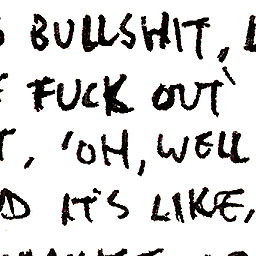 BULLSHIT,
FUCK OUT
, 'OH, WELL
IT'S LIKE,